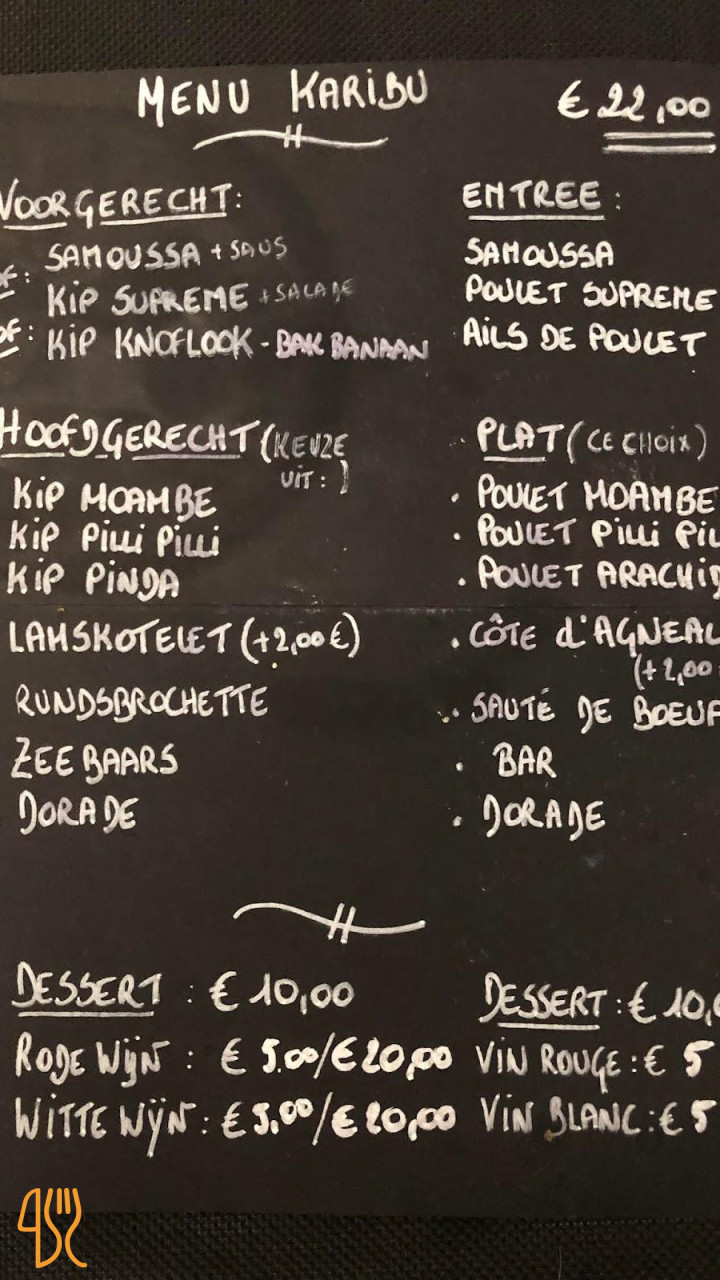 MENU KARIBU
€ 22,00
VOORGERECHT:
SAMOUSSA + SAUS
OF: KIP SUPREME + SALADE
OF: KIP KNOFLOOK - BAK BANAAN
HOOFDGERECHT (KEUZE UIT:)
KIP MOAMBE
KIP PILLI PILLI
KIP PINDA
LAMSKOTELET (+2,00€)
RUNDSBROCHETTE
ZEEBAARS
DORADE
DESSERT : € 10,00
RODE WIJN : € 5.00/€20,00
WITTE WIJN : € 5,00/€20,00
ENTREE :
SAMOUSSA
POULET SUPREME
AILS DE POULET
PLAT (CE CHOIX)
. POULET MOAMBE
. POULET PILLI PIL
. POULET ARACHID
. CÔTE d'AGNEAU
(+2,00
. SAUTÉ DE BOEUF
. BAR
. DORADE
DESSERT : € 10,0
VIN ROUGE : € 5
VIN BLANC : € 5